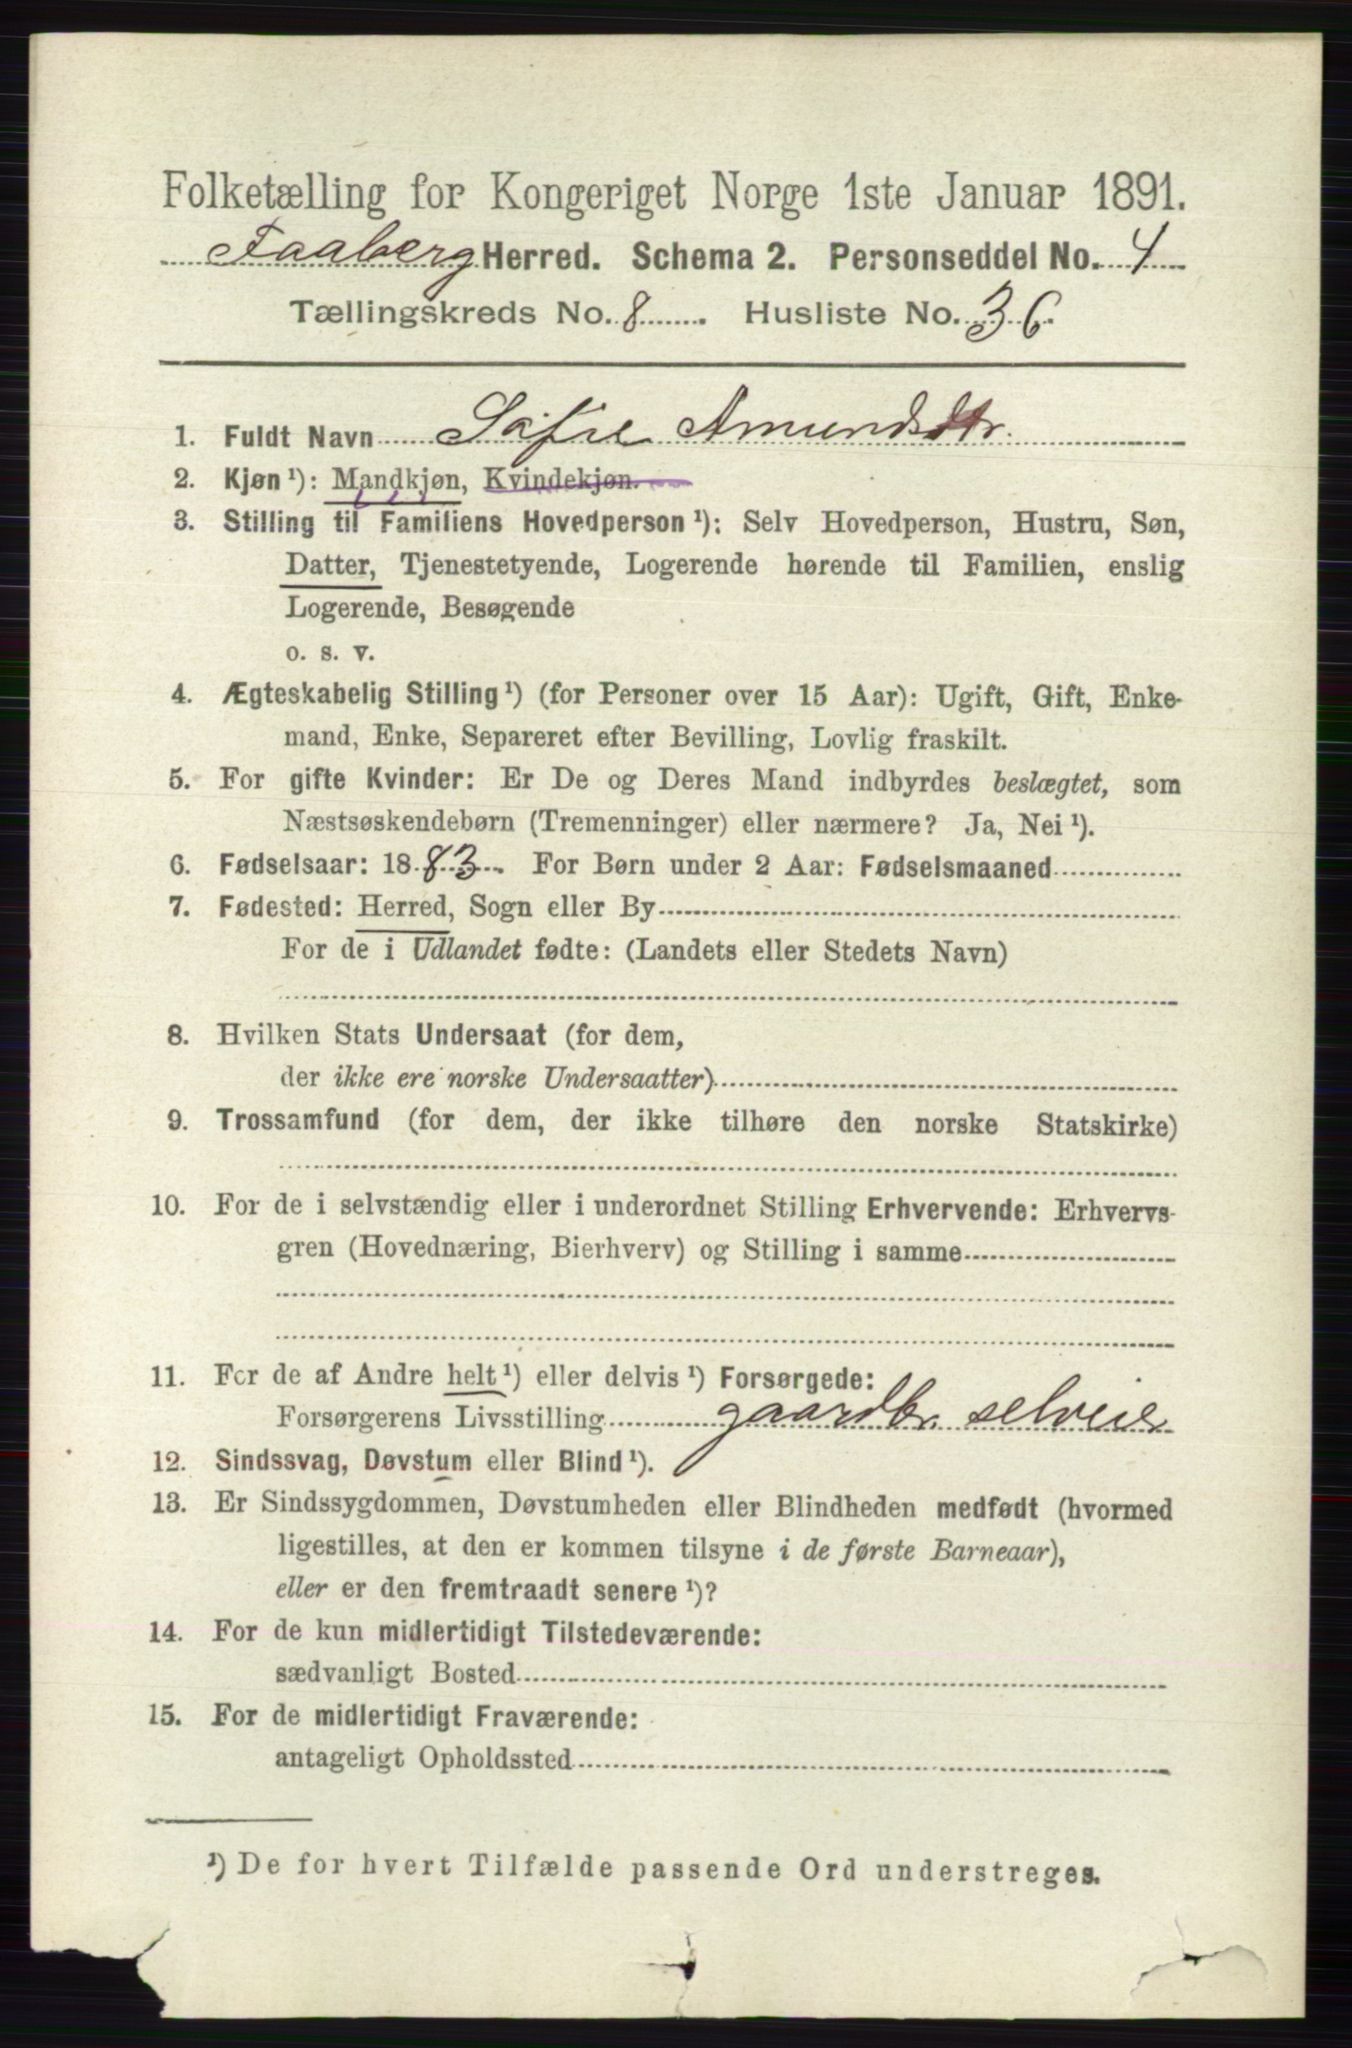 Folketælling for Kongeriget Norge 1ste Januar 1891.
Faaberg Herred. Schema 2. Personseddel No. 4
Tællingskreds No. 8. Husliste No. 36.
1. Fuldt Navn Sofie Amundsdtr.
2. Kjøn ¹): Mandkjøn, Kvindekjøn.
3. Stilling til Familiens Hovedperson ¹): Selv Hovedperson, Hustru, Søn,
Datter, Tjenestetyende, Logerende hørende til Familien, enslig
Logerende, Besøgende
o. s. v.
4. Ægteskabelig Stilling ¹) (for Personer over 15 Aar): Ugift, Gift, Enke-
mand, Enke, Separeret efter Bevilling, Lovlig fraskilt.
5. For gifte Kvinder: Er De og Deres Mand indbyrdes beslægtet, som
Næstsøskendebørn (Tremenninger) eller nærmere? Ja, Nei ¹).
6. Fødselsaar: 1883. For Børn under 2 Aar: Fødselsmaaned
7. Fødested: Herred, Sogn eller By
For de i Udlandet fødte: (Landets eller Stedets Navn)
8. Hvilken Stats Undersaat (for dem,
der ikke ere norske Undersaatter)
9. Trossamfund (for dem, der ikke tilhøre den norske Statskirke)
10. For de i selvstændig eller i underordnet Stilling Erhvervende: Erhvervs-
gren (Hovednæring, Bierhverv) og Stilling i samme
11. For de af Andre helt ¹) eller delvis ¹) Forsørgede:
Forsørgerens Livsstilling gaardbr. selveier
12. Sindssvag, Døvstum eller Blind ¹).
13. Er Sindssygdommen, Døvstumheden eller Blindheden medfødt (hvormed
ligestilles, at den er kommen tilsyne i de første Barneaar),
eller er den fremtraadt senere ¹)?
14. For de kun midlertidigt Tilstedeværende:
sædvanligt Bosted
15. For de midlertidigt Fraværende:
antageligt Opholdssted
¹) De for hvert Tilfælde passende Ord understreges.